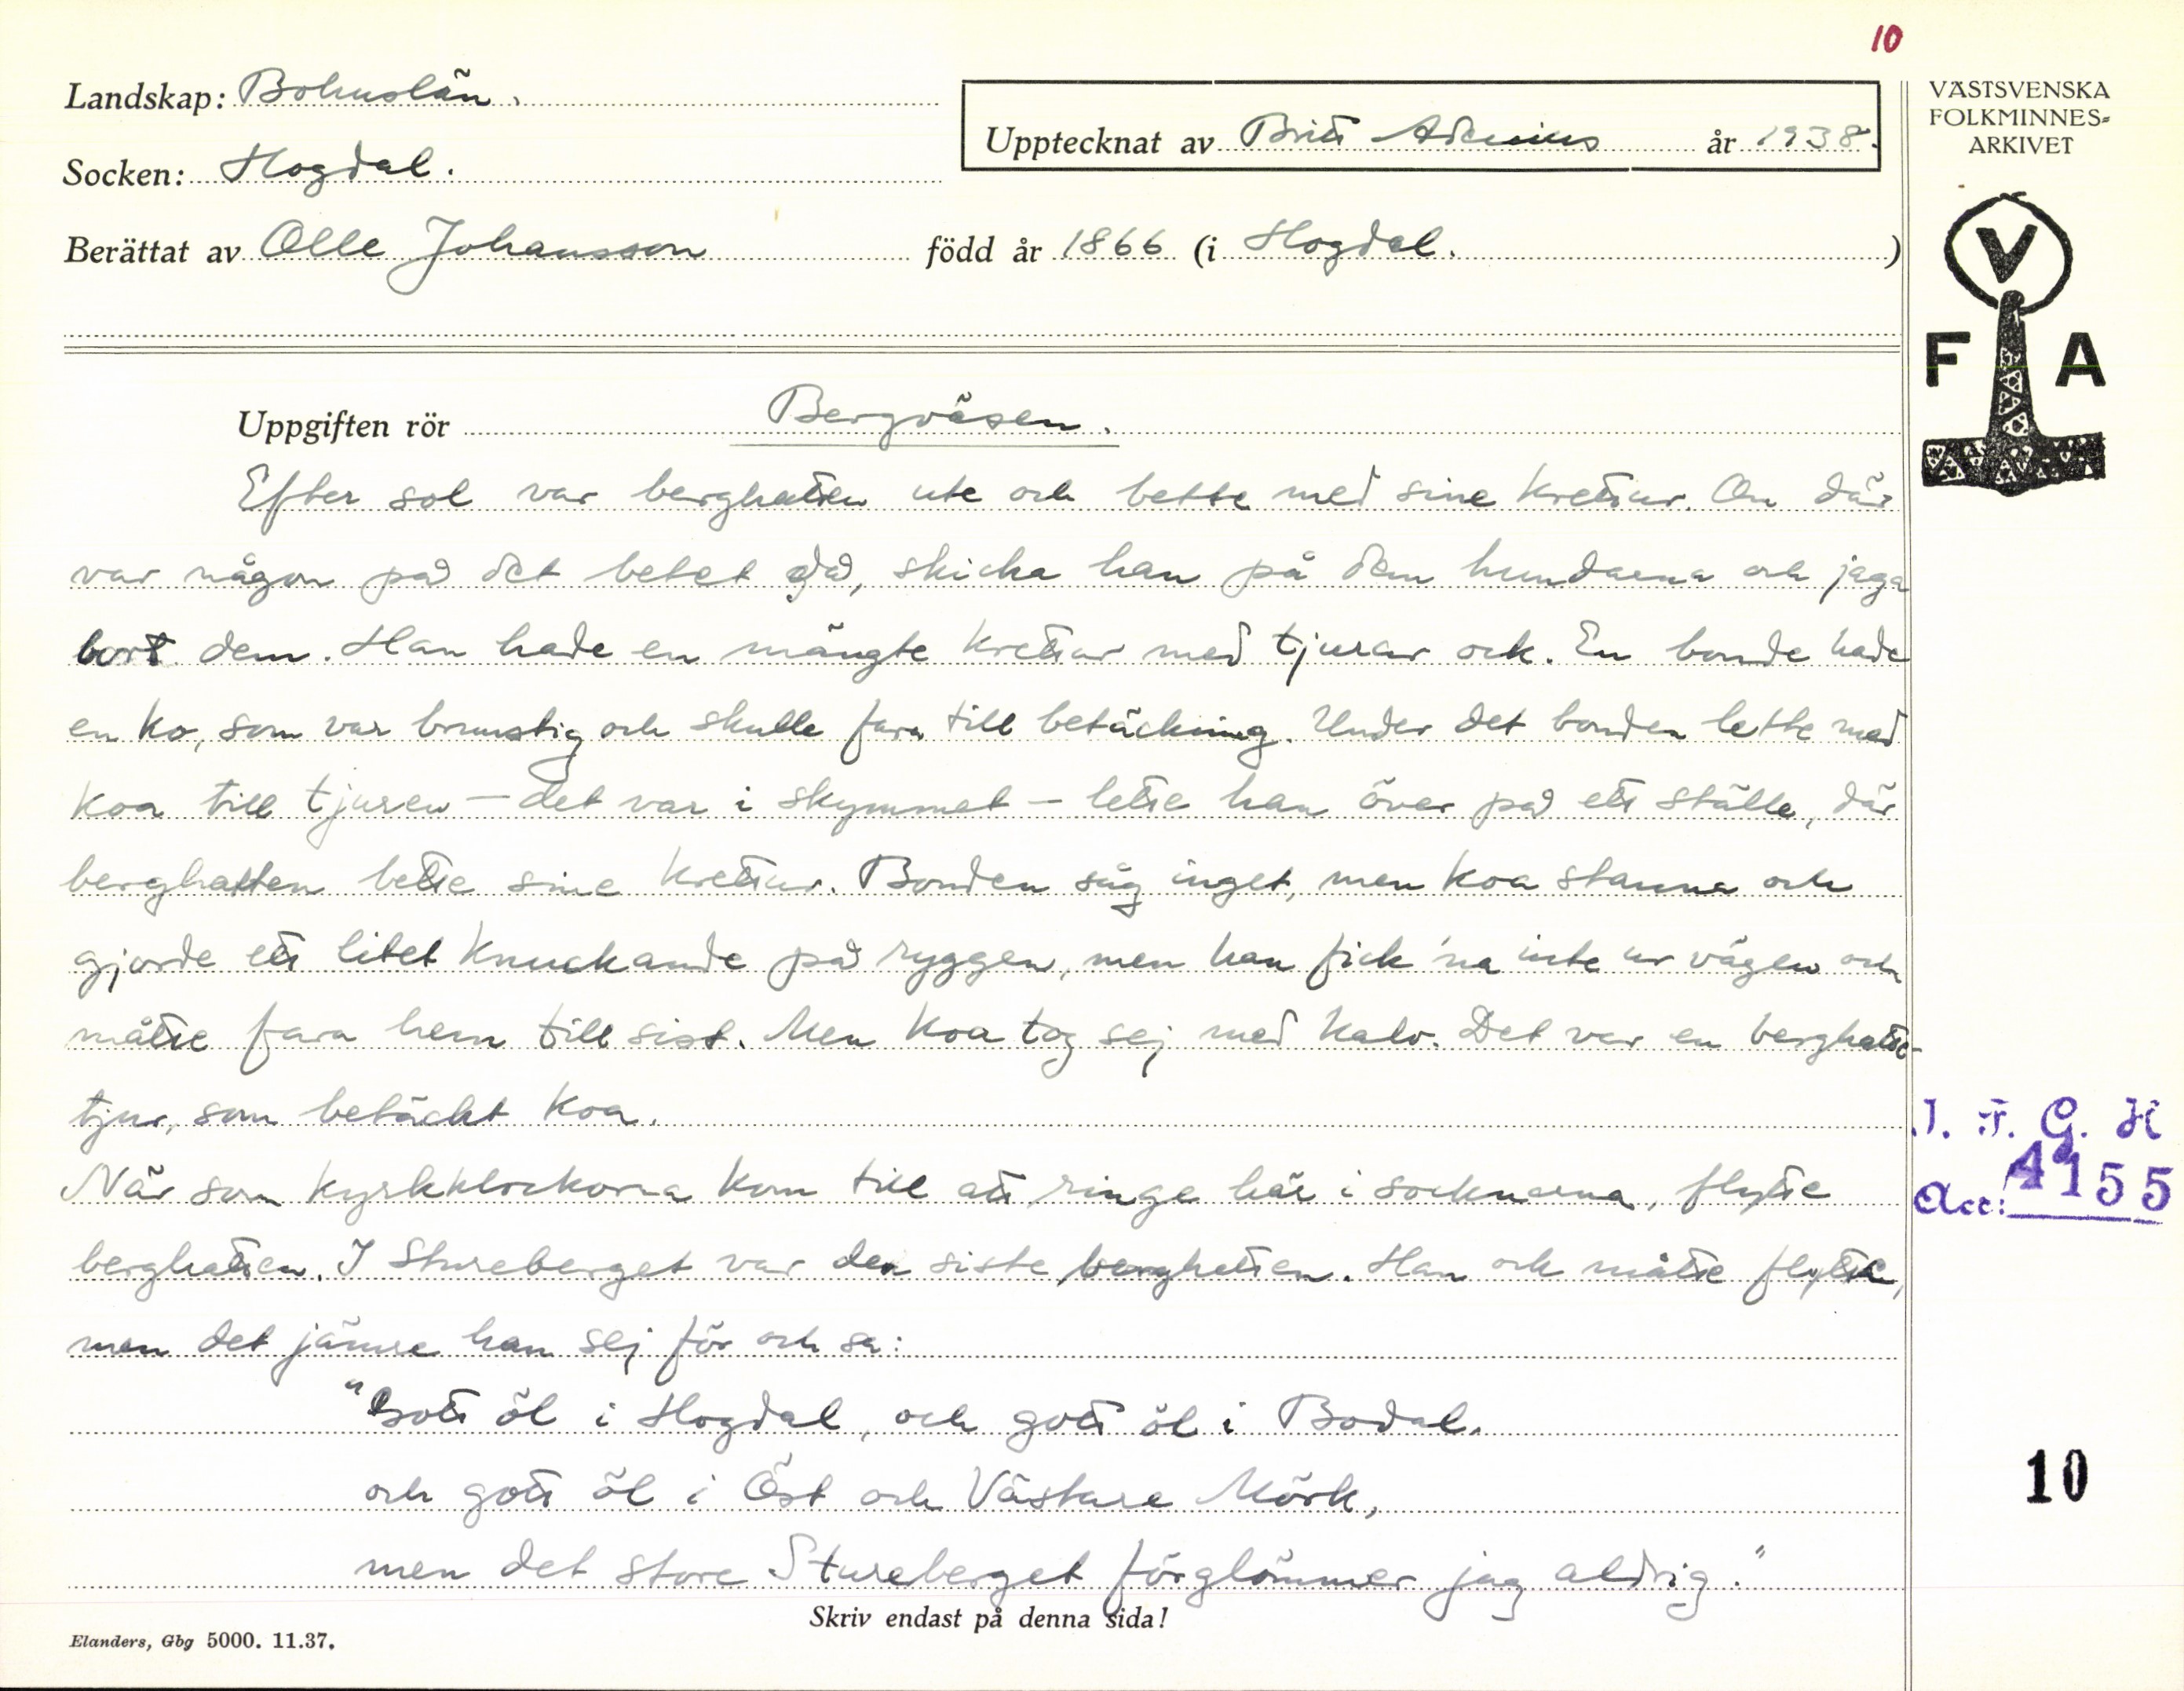 10
Landskap: Bohuslän.
Upptecknat av Britt Ademius år 1938.
Socken: Hogdal.
Berättat av Olle Johansson född år 1866 (i Hogdal.)
VÄSTSVENSKA
FOLKMINNES=
ARKIVET
V
F A
Uppgiften rör Bergväsen.
Efter sol var berghatten ute och bette med sine krettur. Om där
var någon på det betet då, skicka han på dem hundarna och jaga
bort dem. Han hade en mängte krettur med tjurar ock. En bonde hade
en ko, som var brunstig och skulle fara till betäckning. Under det bonden lette med
koa till tjuren – det var i skymmet – lette han över på ett ställe, där
berghatten bette sine krettur. Bonden såg inget, men koa stanna och
gjorde ett litet knuckande på ryggen, men han fick 'na inte ur vägen och
måtte fara hem till sist. Men koa tog sej med kalv. Det var en berghatte-
tjur, som betäckt koa.
När som kyrkklockorna kom till att ringe här i socknarna, flytte
berghatten. I Stureberget var den siste berghatten. Han och måtte flytte,
men det jämre han sej för och sa:
"Gott öl i Hogdal, och gott öl i Bodal.
och gott öl i Öst och Västare Mörk,
men det store Stureberget förglömmer jag aldrig."
I. F. G. H
Acc: 4155
10
Skriv endast på denna sida!
Elanders, Gbg 5000. 11.37.